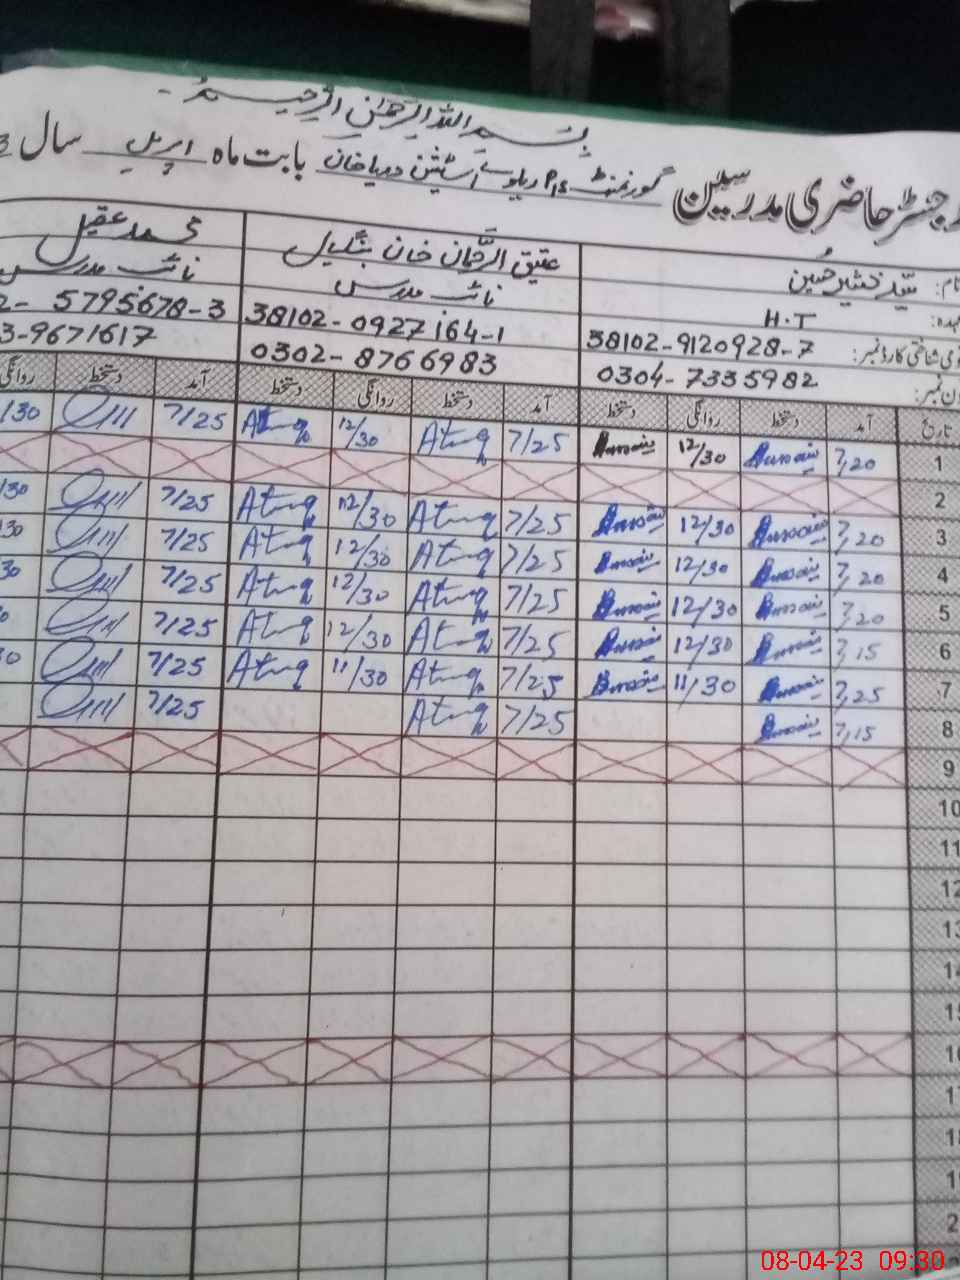 بسم اللہ الرحمٰن الرحیم
رجسٹر حاضری مدرسین گورنمنٹ P/S ریلوے اسٹیشن دریا خان بابت ماہ اپریل سال
نام: سید حسین عتیق الرحمٰن خان محمد عقیل
عہدہ: H.T نائب مدرس نائب مدرس
قومی شناختی کارڈ نمبر: 38102-9120928-7 38102-0927164-1 5795678-3
فون نمبر: 0304-7335982 0302-8766983 3-9671617
تاریخ آمد دستخط روانگی دستخط آمد دستخط روانگی دستخط آمد دستخط روانگی
1 7,20 12/30 7/25 Atiq 12/30 Atiq 7/25 /30
2
3 7,20 12/30 7/25 Atiq 12/30 Atiq 7/25 /30
4 7,20 12/30 7/25 Atiq 12/30 Atiq 7/25 30
5 7,20 12/30 7/25 Atiq 12/30 Atiq 7/25 30
6 7,15 12/30 7/25 Atiq 12/30 Atiq 7/25
7 7,25 11/30 7/25 Atiq 11/30 Atiq 7/25 30
8 7,15 7/25 Atiq 7/25
9
10
11
12
13
14
15
16
17
18
19
08-04-23 09:30